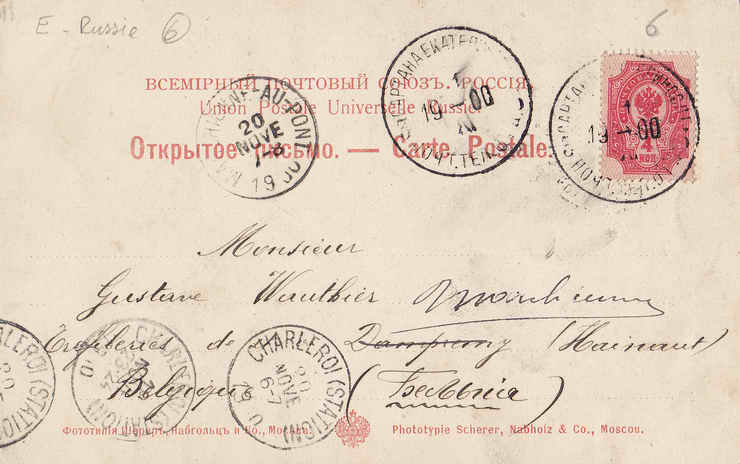 E - Russie 6
6
ВСЕМІРНЫЙ ПОЧТОВЫЙ СОЮЗЪ. РОССІЯ.
Union Postale Universelle Russie
Открытое письмо. — Carte Postale.
AU-PONT
20
NOVE
1900
1
19 00
1
19 00
4
КОП
Monsieur
Gustave Wauthier
de Dampremy (Hainaut)
Belgique (Бельгія)
CHARLEROI (STATION)
20
NOVE
6-7
CHARLEROI (STATION)
LEROI (STATION
20
Фототипія Шереръ, Набгольцъ и Ко., Москва.
Phototypie Scherer, Nabholz & Co., Moscou.